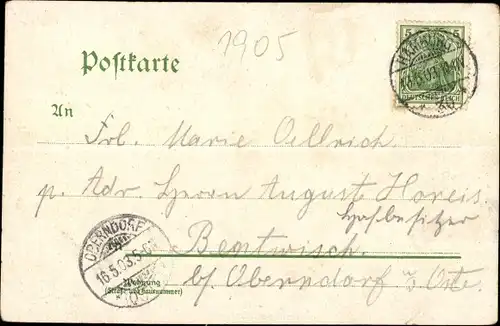 1905
Postkarte
An
Frl. Marie Oellrich
p. Adr. Herrn August Horeis
Hofbesitzer
Bentwisch
b/ Oberndorf a/ Oste.
Wohnung
(Straße und Hausnummer)
5 5
DEUTSCHES REICH
HARBURG
16.5.03
OBERNDORF
16.5.03.5-6